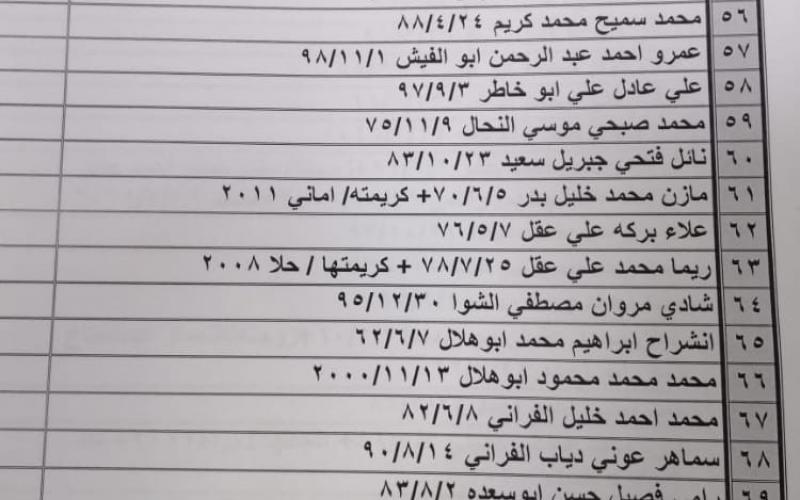 ٥٦ محمد سميح محمد كريم ٨٨/٤/٢٤
٥٧ عمرو احمد عبد الرحمن ابو الفيش ٩٨/١١/١
٥٨ علي عادل علي ابو خاطر ٩٧/٩/٣
٥٩ محمد صبحي موسي النحال ٧٥/١١/٩
٦٠ نائل فتحي جبريل سعيد ٨٣/١٠/٢٣
٦١ مازن محمد خليل بدر ٧٠/٦/٥+ كريمته/ اماني ٢٠١١
٦٢ علاء بركه علي عقل ٧٦/٥/٧
٦٣ ريما محمد علي عقل ٧٨/٧/٢٥ + كريمتها / حلا ٢٠٠٨
٦٤ شادي مروان مصطفي الشوا ٩٥/١٢/٣٠
٦٥ انشراح ابراهيم محمد ابوهلال ٦٢/٦/٧
٦٦ محمد محمد محمود ابوهلال ٢٠٠٠/١١/١٣
٦٧ محمد احمد خليل الفراني ٨٢/٦/٨
٦٨ سماهر عوني دياب الفراني ٩٠/٨/١٤
٦٩ رامي فصيل حسن ابوسعده ٨٣/٨/٢